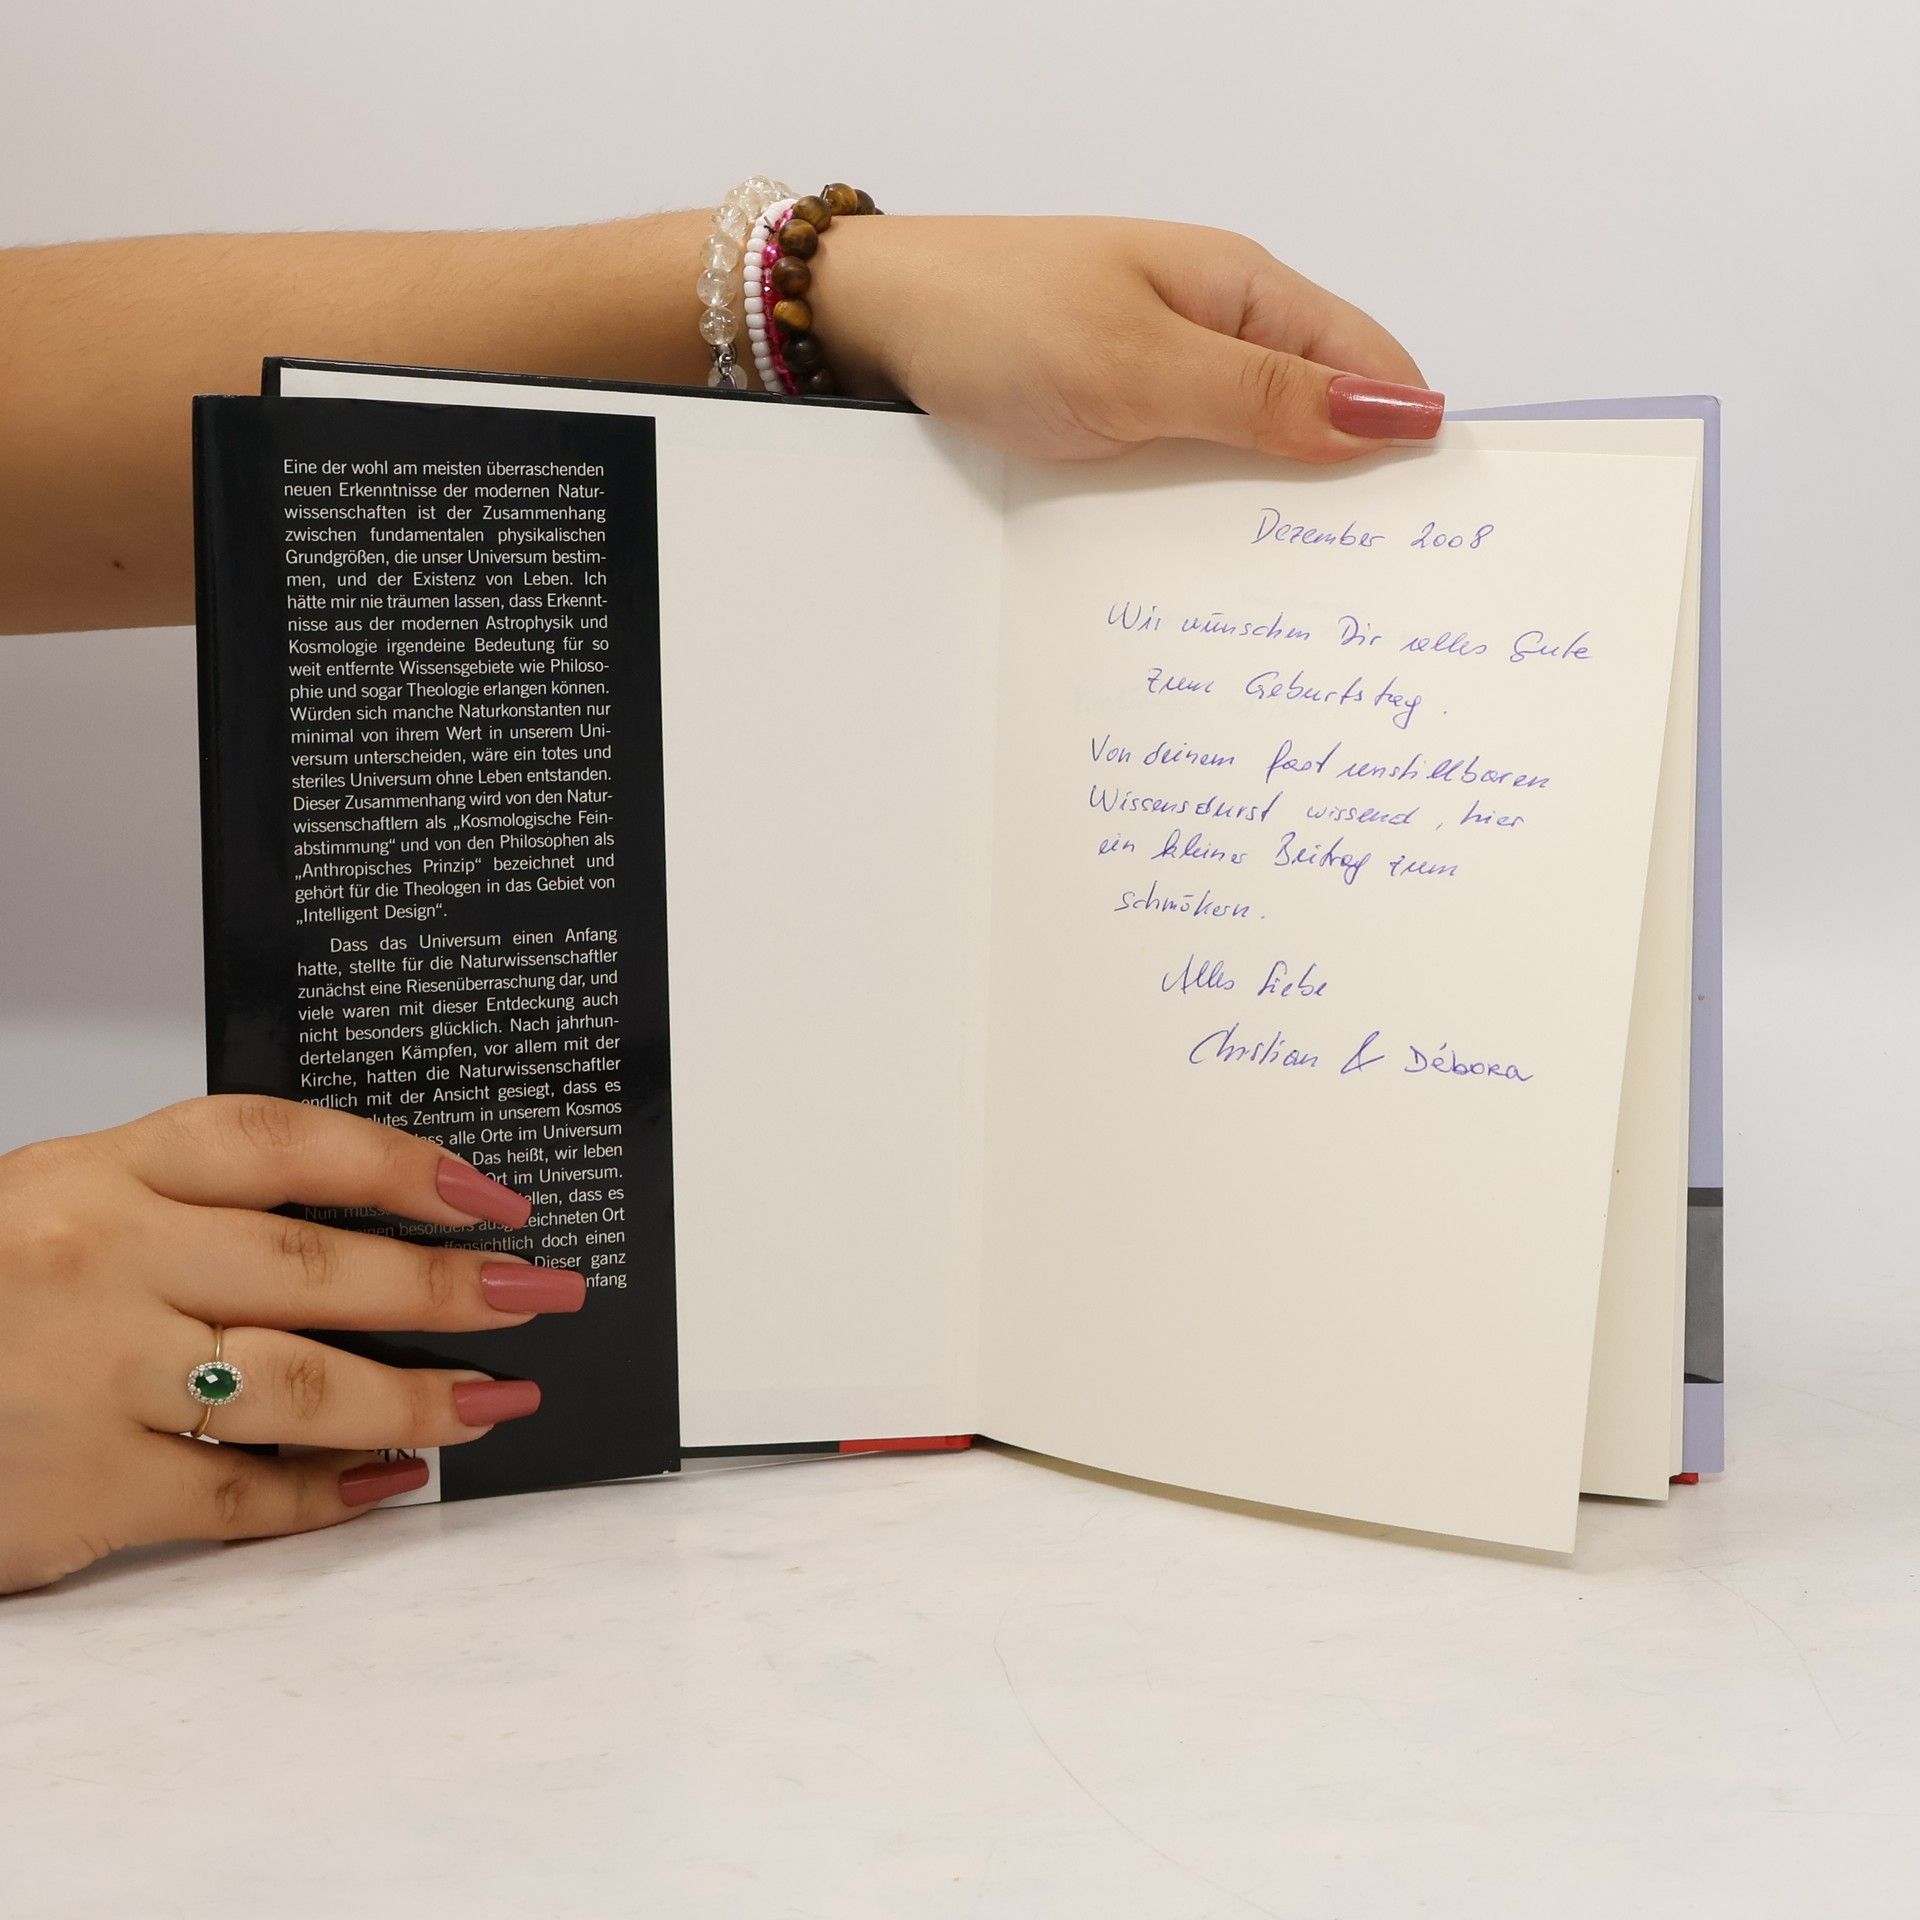 Eine der wohl am meisten überraschenden
neuen Erkenntnisse der modernen Natur-
wissenschaften ist der Zusammenhang
zwischen fundamentalen physikalischen
Grundgrößen, die unser Universum bestim-
men, und der Existenz von Leben. Ich
hätte mir nie träumen lassen, dass Erkennt-
nisse aus der modernen Astrophysik und
Kosmologie irgendeine Bedeutung für so
weit entfernte Wissensgebiete wie Philoso-
phie und sogar Theologie erlangen können.
Würden sich manche Naturkonstanten nur
minimal von ihrem Wert in unserem Uni-
versum unterscheiden, wäre ein totes und
steriles Universum ohne Leben entstanden.
Dieser Zusammenhang wird von den Natur-
wissenschaftlern als „Kosmologische Fein-
abstimmung“ und von den Philosophen als
„Anthropisches Prinzip“ bezeichnet und
gehört für die Theologen in das Gebiet von
„Intelligent Design“.
Dass das Universum einen Anfang
hatte, stellte für die Naturwissenschaftler
zunächst eine Riesenüberraschung dar, und
viele waren mit dieser Entdeckung auch
nicht besonders glücklich. Nach jahrhun-
dertelangen Kämpfen, vor allem mit der
Kirche, hatten die Naturwissenschaftler
endlich mit der Ansicht gesiegt, dass es
Zentrum in unserem Kosmos
alle Orte im Universum
Das heißt, wir leben
Ort im Universum.
Nun dass es
besonders ausgezeichneten Ort
doch einen
Dieser ganz
Dezember 2008
Wir wünschen Dir alles Gute
zum Geburtstag.
Von deinem fast unstillbaren
Wissensdurst wissend, hier
ein kleiner Beitrag zum
schmökern.
Alles Liebe
Christian & Débora